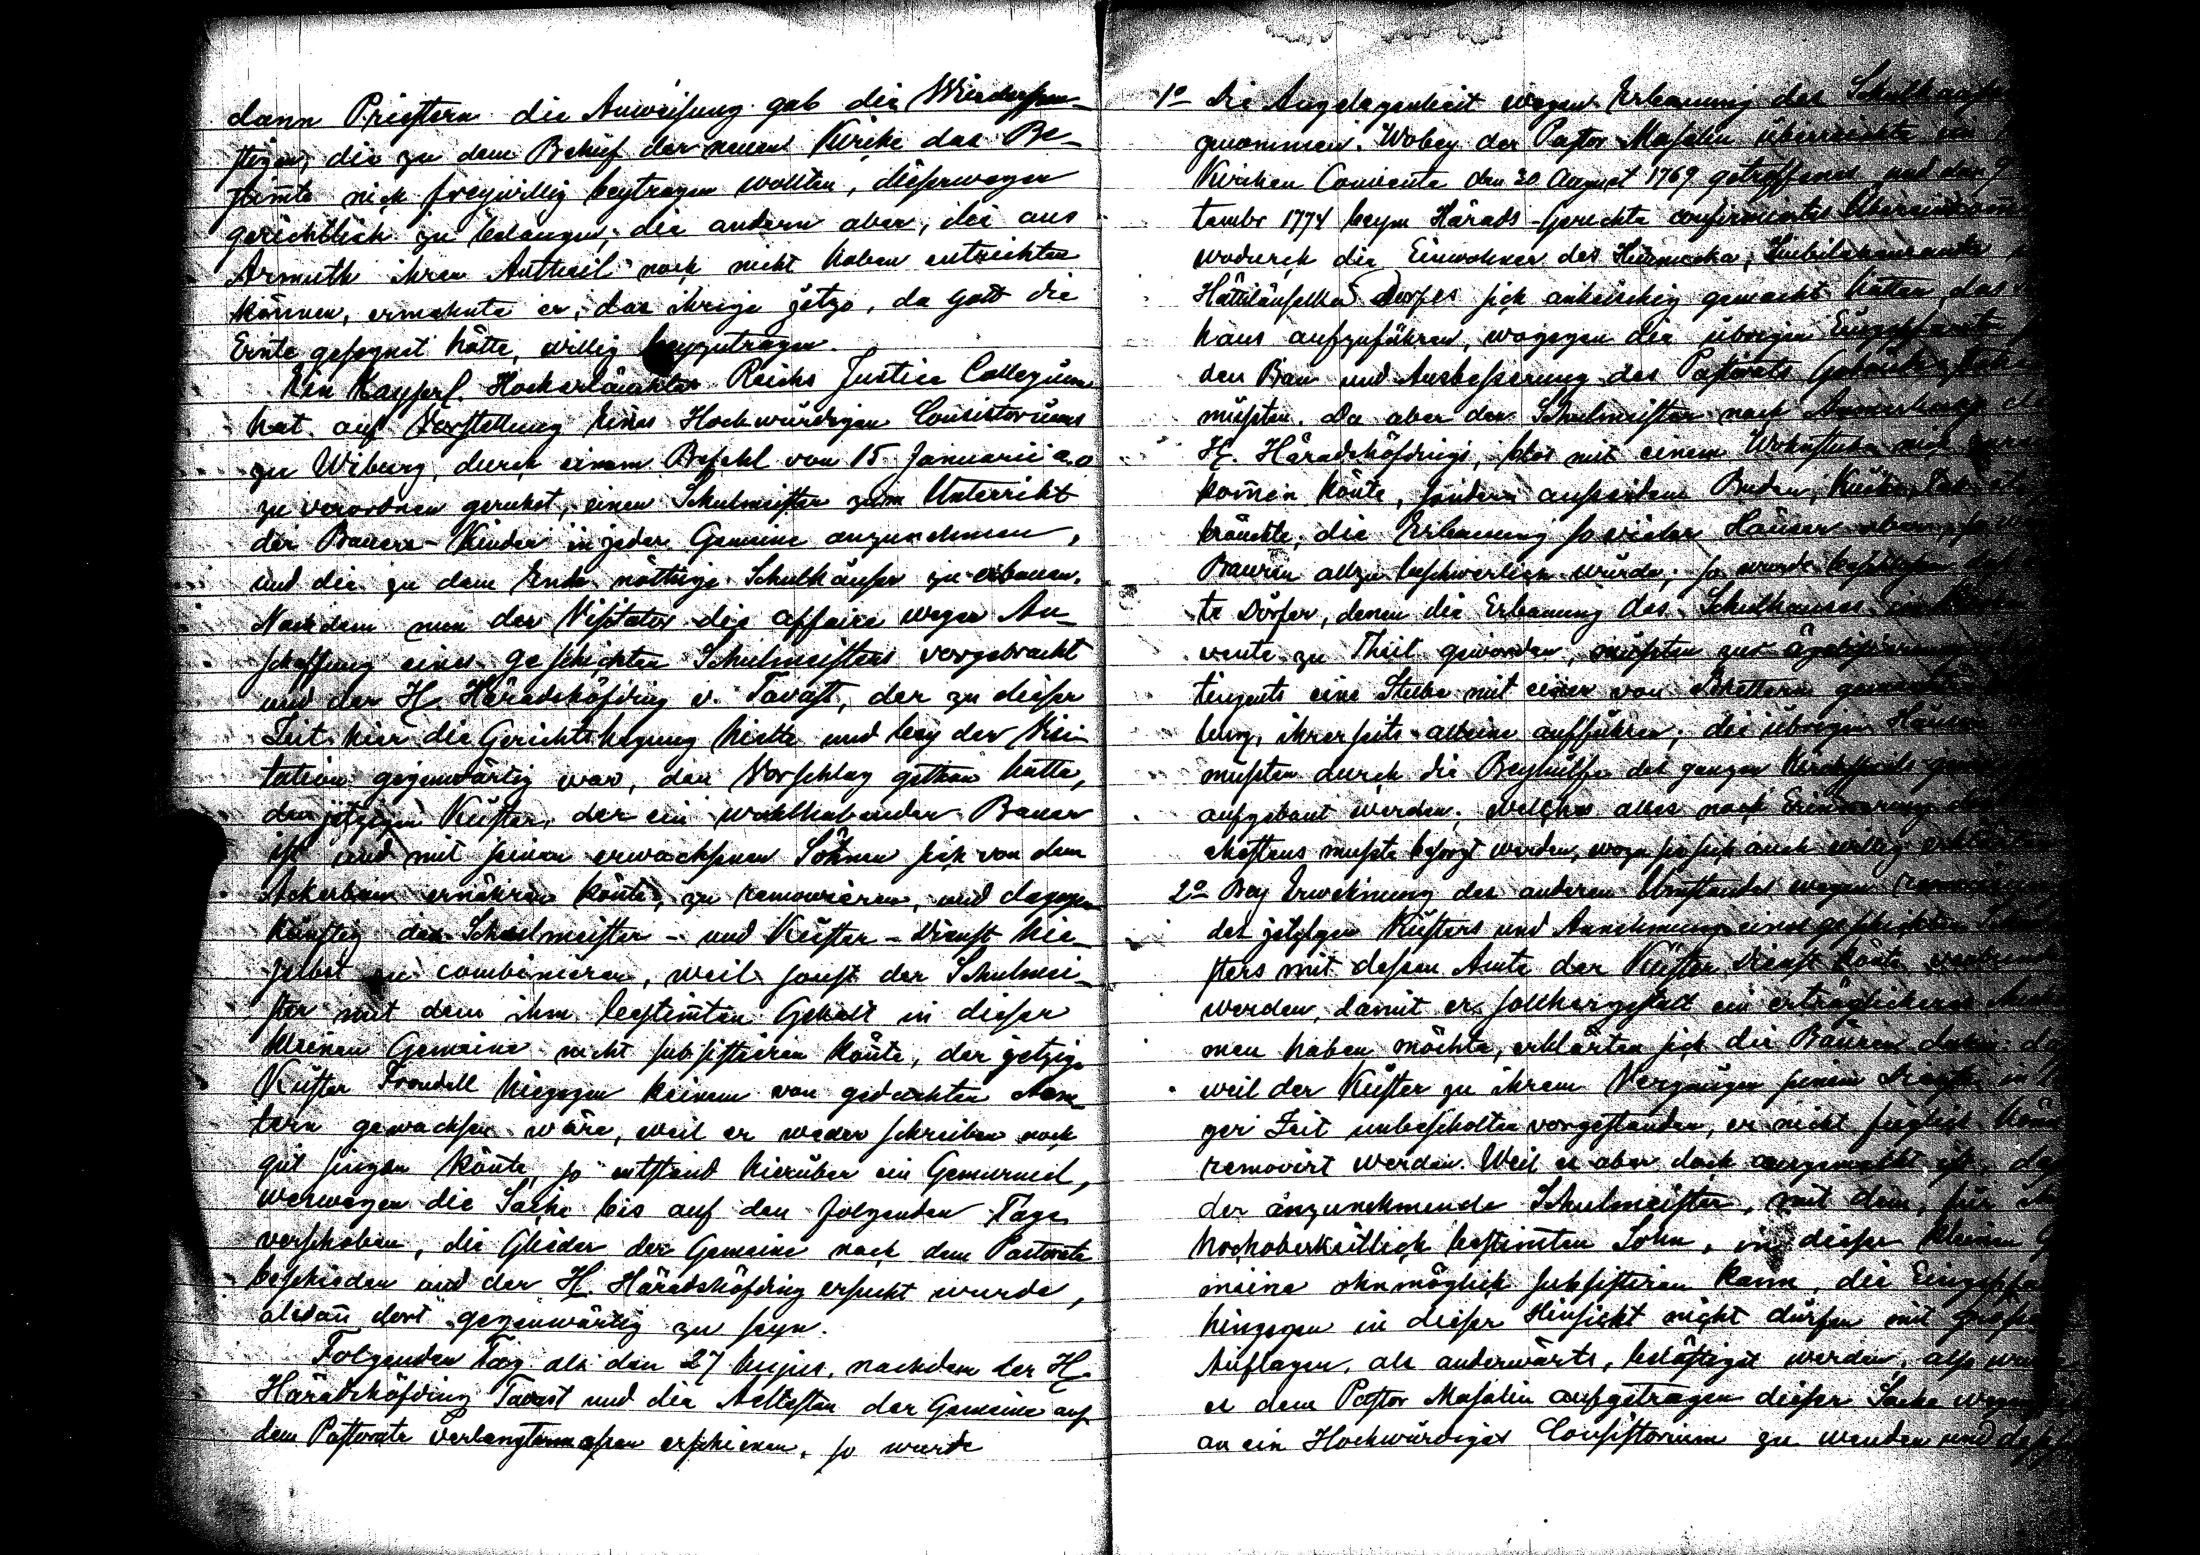 dann Priestern die Anweisung gab die Wiederspen-
stigen, die zu dem Behuf der neuen Kirche das Be-
stim̅te nich freywillig beytragen wollten, dieserwegen
gerichtlich zu belangen; die andern aber, die aus
Armuth ihren Antheil noch nicht haben entrichten
können, ermahnte er, das ihrige jetzo, da Gott die
Ernte gesegnet hätte, willig beyzutragen.
Ein Kayserl. Hocherlauchter Reichs Justice Collegium
hat auf Vorstellung Eines Hochwürdigen Consistoriums
zu Wiburg, durch einem Befehl von 15 Januarii a.c.
zu verordnen geruhet, einen Schulmeister zum Unterricht
der Bauern-Kinder in jeder Gemeine anzunehmen,
und die zu dem Ende nöthige Schulhäuser zu erbauen.
Nachdem nun der Visitator die affaire wegen An-
schaffung eines geschickten Schulmeisters vorgebracht
und der H. Häradshöfding v. Tavast, der zu dieser
Zeit hier die Gerichtshegung hielte und bey der Visi-
tation gegenwärtig war, den Vorschlag gethan hatte,
den jetzigen Küster, der ein wohlhabender Bauer
ist und mit seinen erwachsenen Söhnen sich von dem
Ackerbau ernähren könte, zu removieren, und dagegen
künftig den Schulmeister- und Küster-Dienst hie-
selbst zu combinieren, weil sonst der Schulmei-
ster mit dem ihm bestim̅ten Gehalt in dieser
kleinen Gemeine nicht subsistieren könte, der jetzige
Küster Frondell hiegegen keinem von gedachten Aem-
tern gewachsen wäre, weil er weder schreiben noch
gut singen könte, so entstand hierüber ein Gemurmel,
weswegen die Sache bis auf den folgenden Tage
verschoben, die Glieder der Gemeine nach dem Pastorate
beschieden und der H. Häradshöfding ersucht wurde,
alsdan̅ dort gegenwärtig zu seyn.
Folgenden Tag als den 27 hujus, nachdem der H.
Häradshöfding Tavast und die Aeltesten der Gemeine auf
dem Pastorate verlangtermasen erschienen, so wurde
1º die Angelegenheit wegen Erbauung des Schulhauses
genommen. Wobey der Pastor Masalin überreichte ein
Kirchen Convente den 30 August 1769 getroffenes und den 9
tembr 1774 beym Härads-Gerichte confirmirtes
wodurch die Einwohner des
Dorfes sich anheischig gemacht hätten, das
haus aufzuführen, wogegen die übrigen Eingepfarrte
den Bau und Ausbesserung des Pastorats Gebäude
müsten. Da aber der Schulmeister nach Anmerkung
H. Häradshöfdings, blos mit einem Wohnstube nich
kom̅en könte, sondern ausserdem Buden, Küche,
bräuchte, die Erbauung so vieler Häuser aber
Bauren allzu beschwerlich würde, so wurde beschlossen
te Dörfer, denen die Erbauung des Schulhauses
vente zu Theil geworden, müsten zur
tingents eine Stube mit einer von Brettern
lung, ihrerseits alleine aufführen; die übrigen Häuser
müsten durch die Beyhülfe des ganzen Kirchspiels
aufgebaut werden; welches alles nach Erinnerung
chstens muste besorgt werden, wozu sie sich auch willig erklärten
2º Bey Erwehnung des anderen Umstandes wegen
des jetzigen Küsters und Annehmung eines geschickten
sters mit dessen Amte der Küster Dienst könte
werden, damit er solchergestalt ein erträglicheres
men haben möchte, erklärten sich die Bauren dahin:
weil der Küster zu ihrem Vergnügen seinem Dienste in
ger Zeit unbescholten vorgestanden, er nicht füglich
removirt werden. Weil es aber doch ausgemacht ist,
der anzunehmende Schulmeister, mit dem, für
hochoberkeitlich bestim̅ten Lohn, in dieser kleinen
meine ohnmöglich subsistiren kann, die
hingegen in dieser Hinsicht nicht dürfen mit
Auflagen, als anderwärts, belästiget werden, also
es dem Pastor Masalin aufgetragen dieser Sache wegen
an ein Hochwürdiges Consistorium zu wenden und